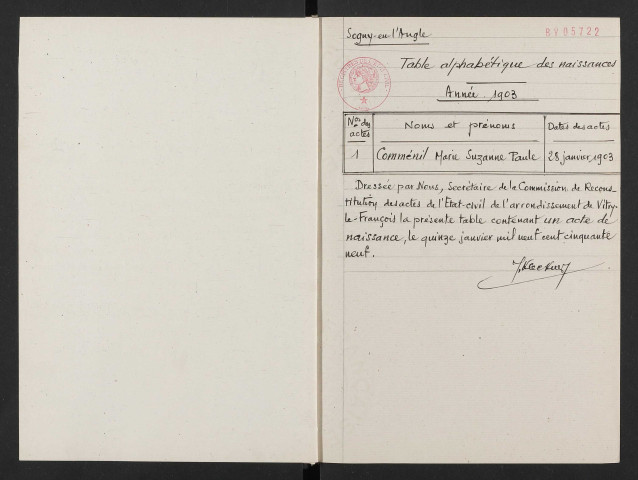 Sogny-en-l'Angle
B905722
Table alphabétique des naissances
Année 1903
Nos des actes
Noms et prénoms
Dates des actes
1 Comménil Marie Suzanne Paule 28 janvier 1903
Dressée par Nous, Secrétaire de la Commission de Recons-
titution des actes de l'Etat-civil de l'arrondissement de Vitry-
le-François la présente table contenant un acte de
naissance, le quinze janvier mil neuf cent cinquante
neuf.